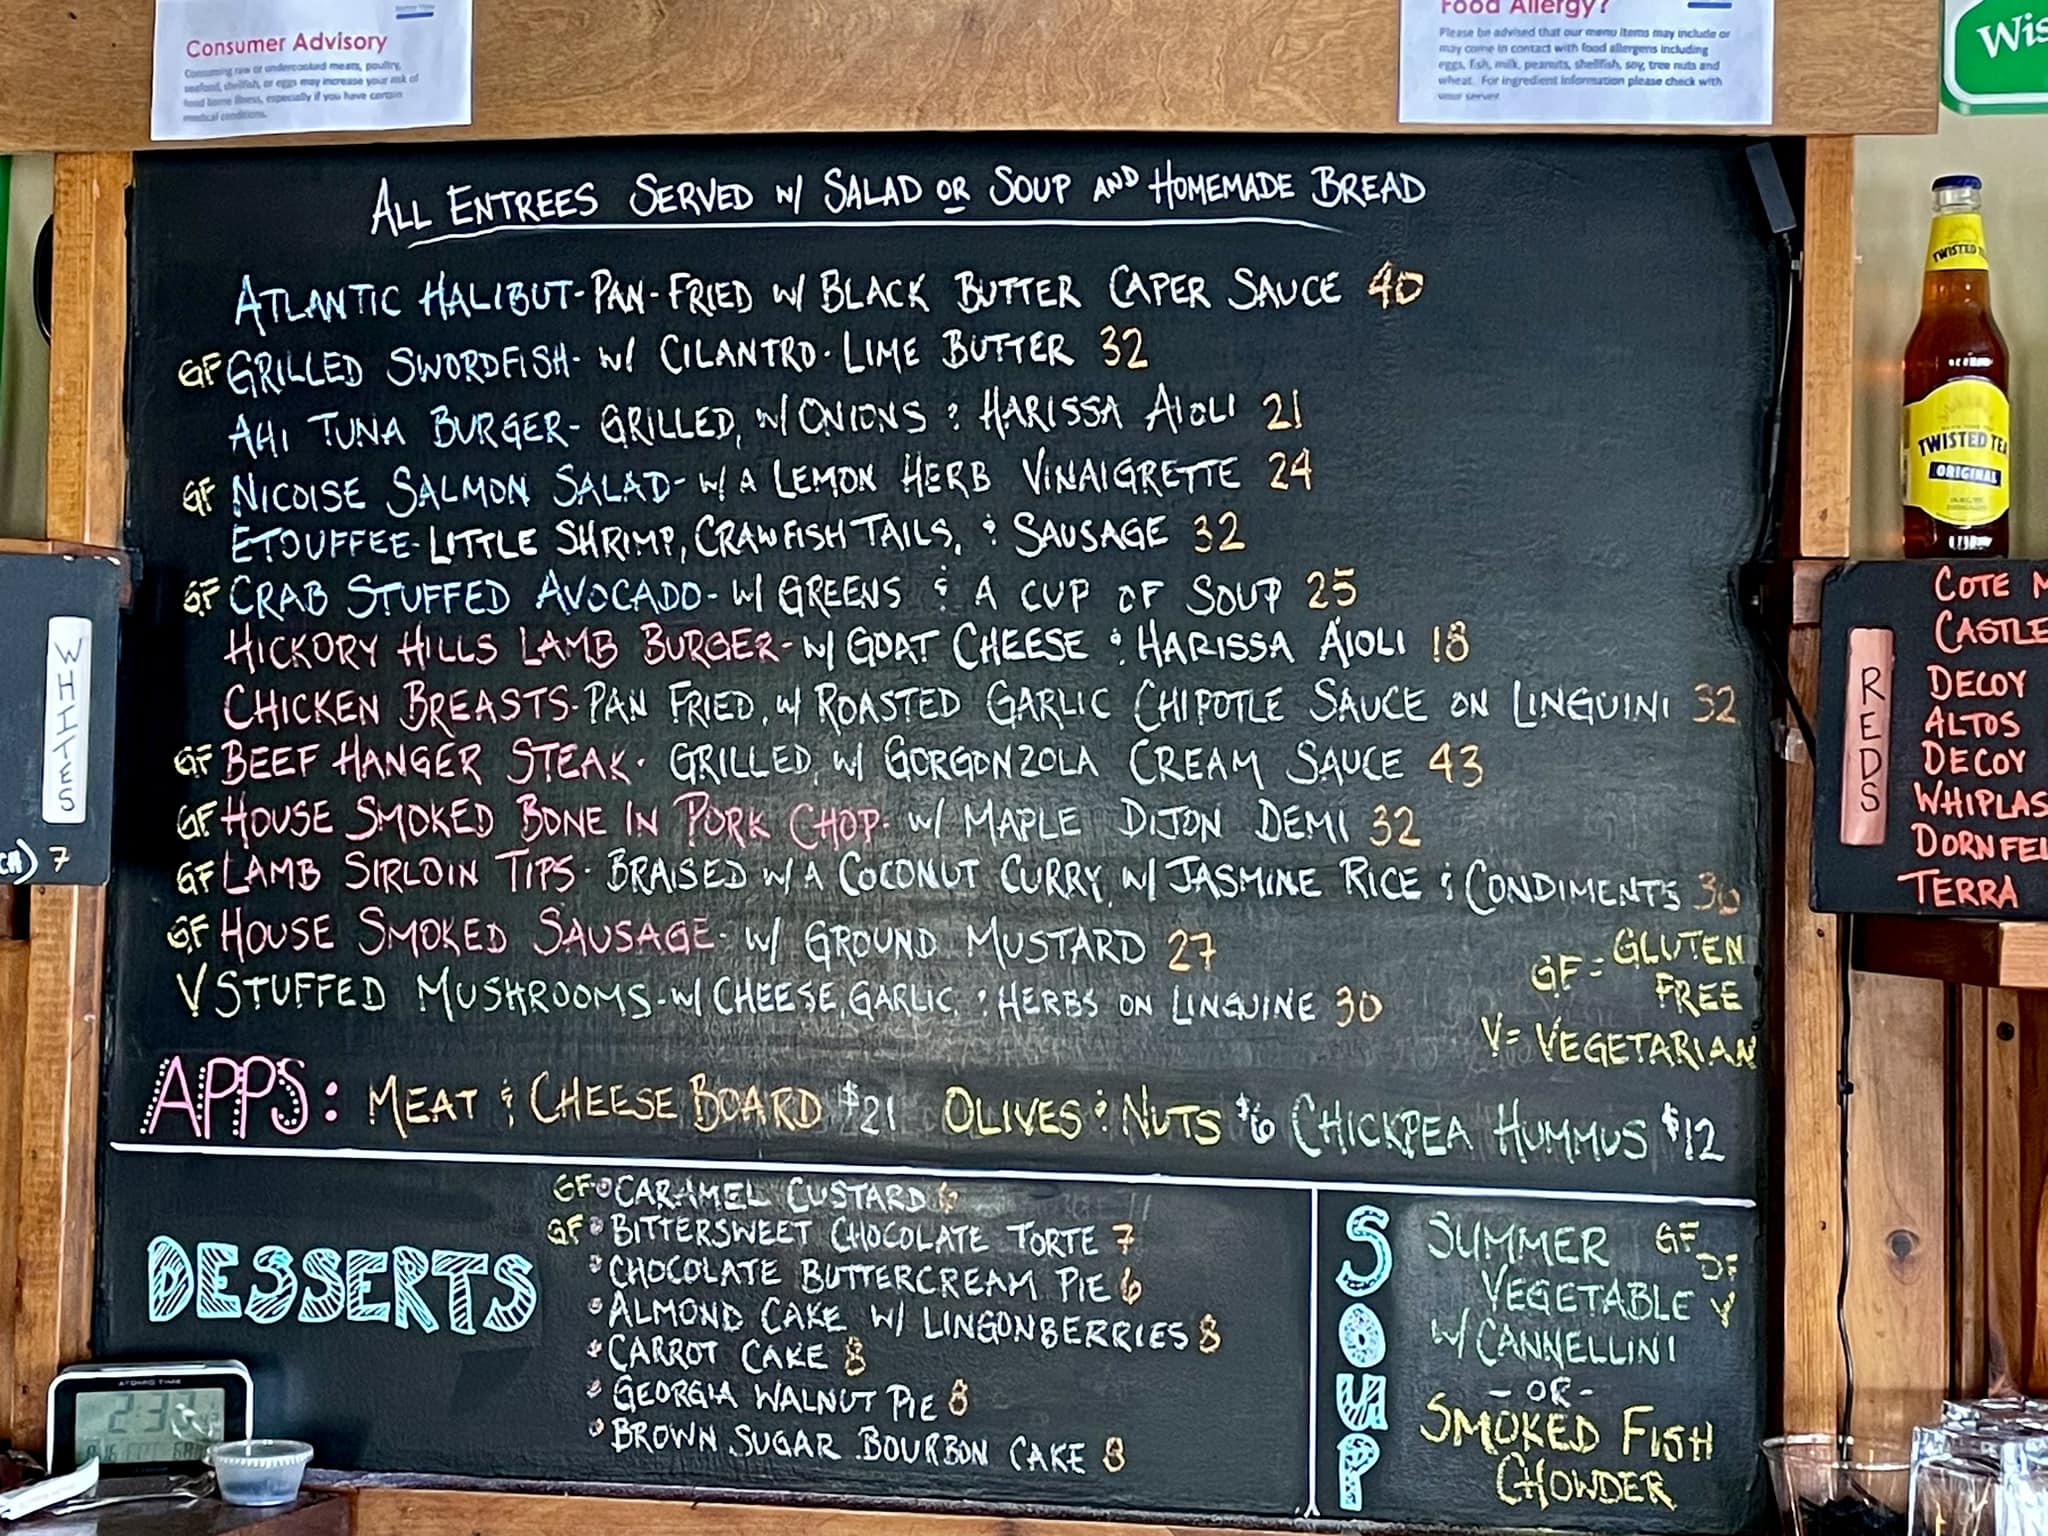 Consumer Advisory
Consuming raw or undercooked meats, poultry,
seafood, shellfish, or eggs may increase your risk of
food borne illness, especially if you have certain
medical conditions.
Food Allergy?
Please be advised that our menu items may include or
may come in contact with food allergens including
eggs, fish, milk, peanuts, shellfish, soy, tree nuts and
wheat. For ingredient information please check with
your server.
Wis
ALL ENTREES SERVED W/ SALAD OR SOUP AND HOMEMADE BREAD
ATLANTIC HALIBUT-PAN-FRIED W/ BLACK BUTTER CAPER SAUCE 40
GF GRILLED SWORDFISH- W/ CILANTRO-LIME BUTTER 32
AHI TUNA BURGER- GRILLED, W/ ONIONS & HARISSA AIOLI 21
GF NICOISE SALMON SALAD- W/ A LEMON HERB VINAIGRETTE 24
ETOUFFEE-LITTLE SHRIMP, CRAWFISH TAILS, & SAUSAGE 32
GF CRAB STUFFED AVOCADO- W/ GREENS & A CUP OF SOUP 25
HICKORY HILLS LAMB BURGER- W/ GOAT CHEESE & HARISSA AIOLI 18
CHICKEN BREASTS-PAN FRIED, W/ ROASTED GARLIC CHIPOTLE SAUCE ON LINGUINI 32
GF BEEF HANGER STEAK- GRILLED, W/ GORGONZOLA CREAM SAUCE 43
GF HOUSE SMOKED BONE IN PORK CHOP- W/ MAPLE DIJON DEMI 32
GF LAMB SIRLOIN TIPS- BRAISED W/ A COCONUT CURRY, W/ JASMINE RICE & CONDIMENTS 30
GF HOUSE SMOKED SAUSAGE- W/ GROUND MUSTARD 27
V STUFFED MUSHROOMS-W/ CHEESE, GARLIC, & HERBS ON LINGUINE 30
GF= GLUTEN
FREE
V= VEGETARIAN
APPS: MEAT & CHEESE BOARD $21 OLIVES & NUTS $6 CHICKPEA HUMMUS $12
DESSERTS
GF CARAMEL CUSTARD 6
GF BITTERSWEET CHOCOLATE TORTE 7
CHOCOLATE BUTTERCREAM PIE 6
ALMOND CAKE W/ LINGONBERRIES 8
CARROT CAKE 8
GEORGIA WALNUT PIE 8
BROWN SUGAR BOURBON CAKE 8
SOUP
SUMMER GF
VEGETABLE DF
W/ CANNELLINI V
-OR-
SMOKED FISH
CHOWDER
WHITES
7
REDS
COTE
CASTLE
DECOY
ALTOS
DECOY
WHIPLAS
DORNFEL
TERRA
TWISTED TEA
ORIGINAL
ATOMIC TIME